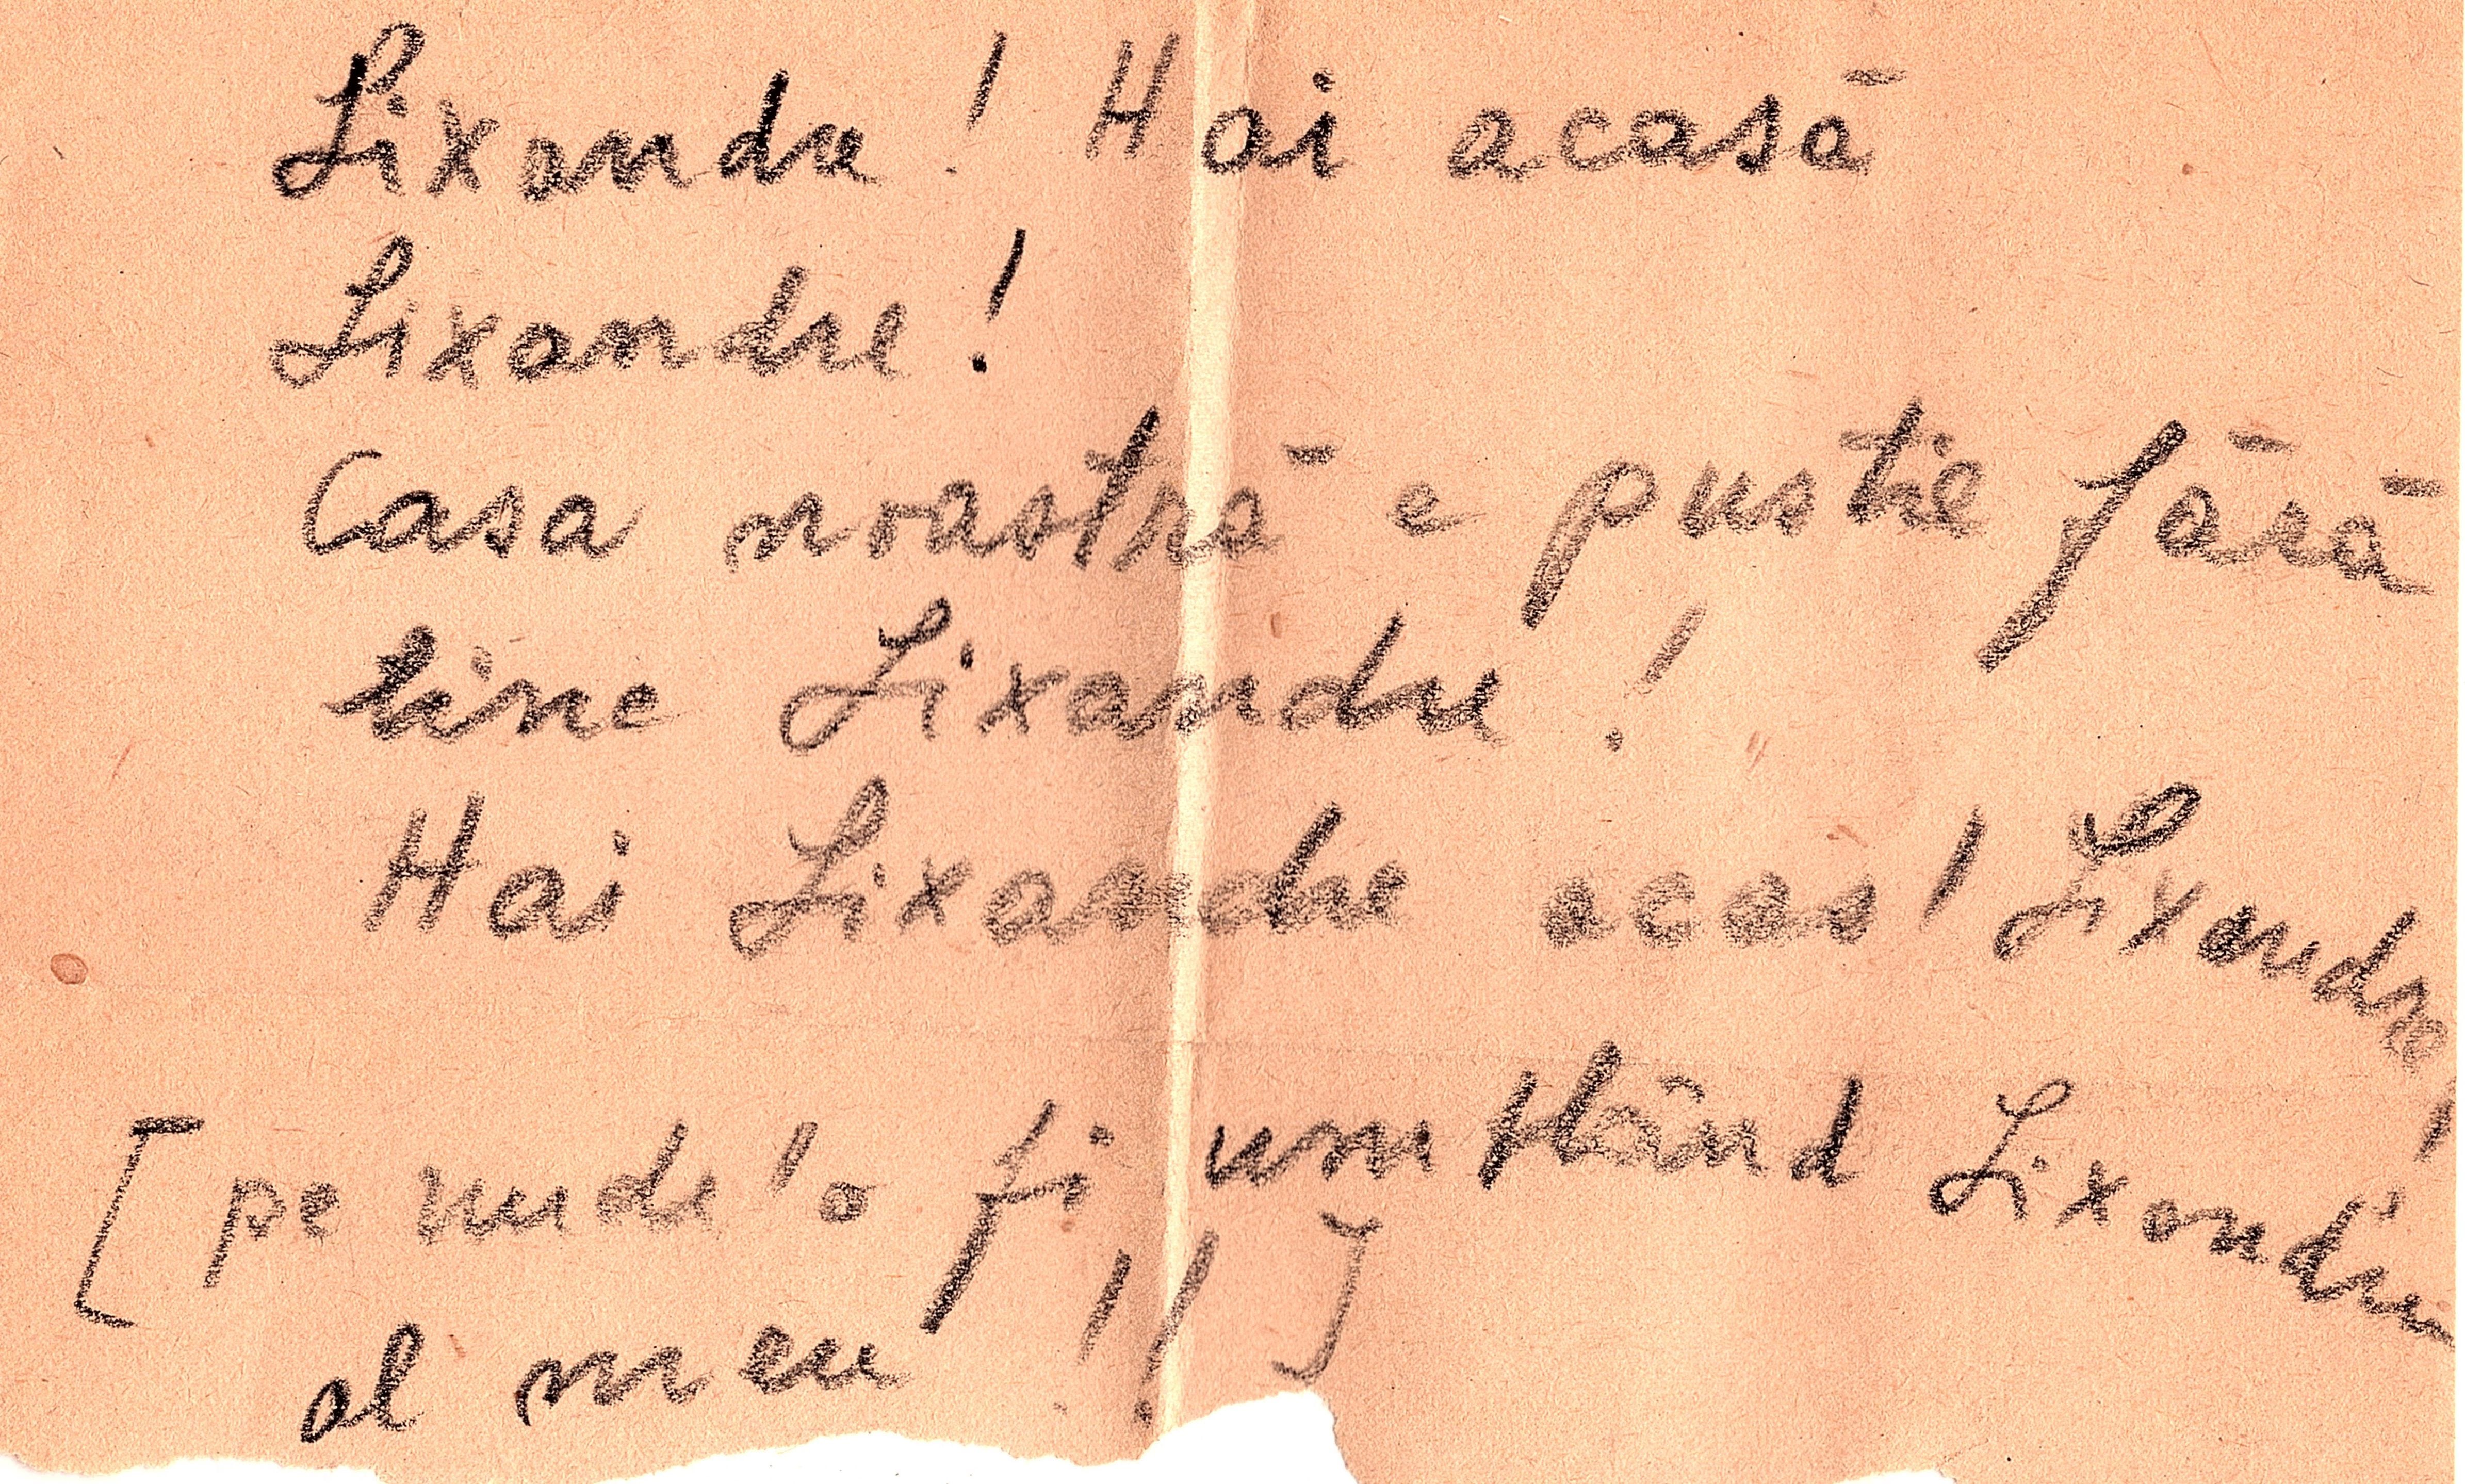 Lixandre! Hai acasă
Lixandre!
Casa noastră e pustie fără
tine Lixandre!
Hai Lixandre acas! Lixandre!
[pe unde'o fi umblând Lixandru
al meu!!]